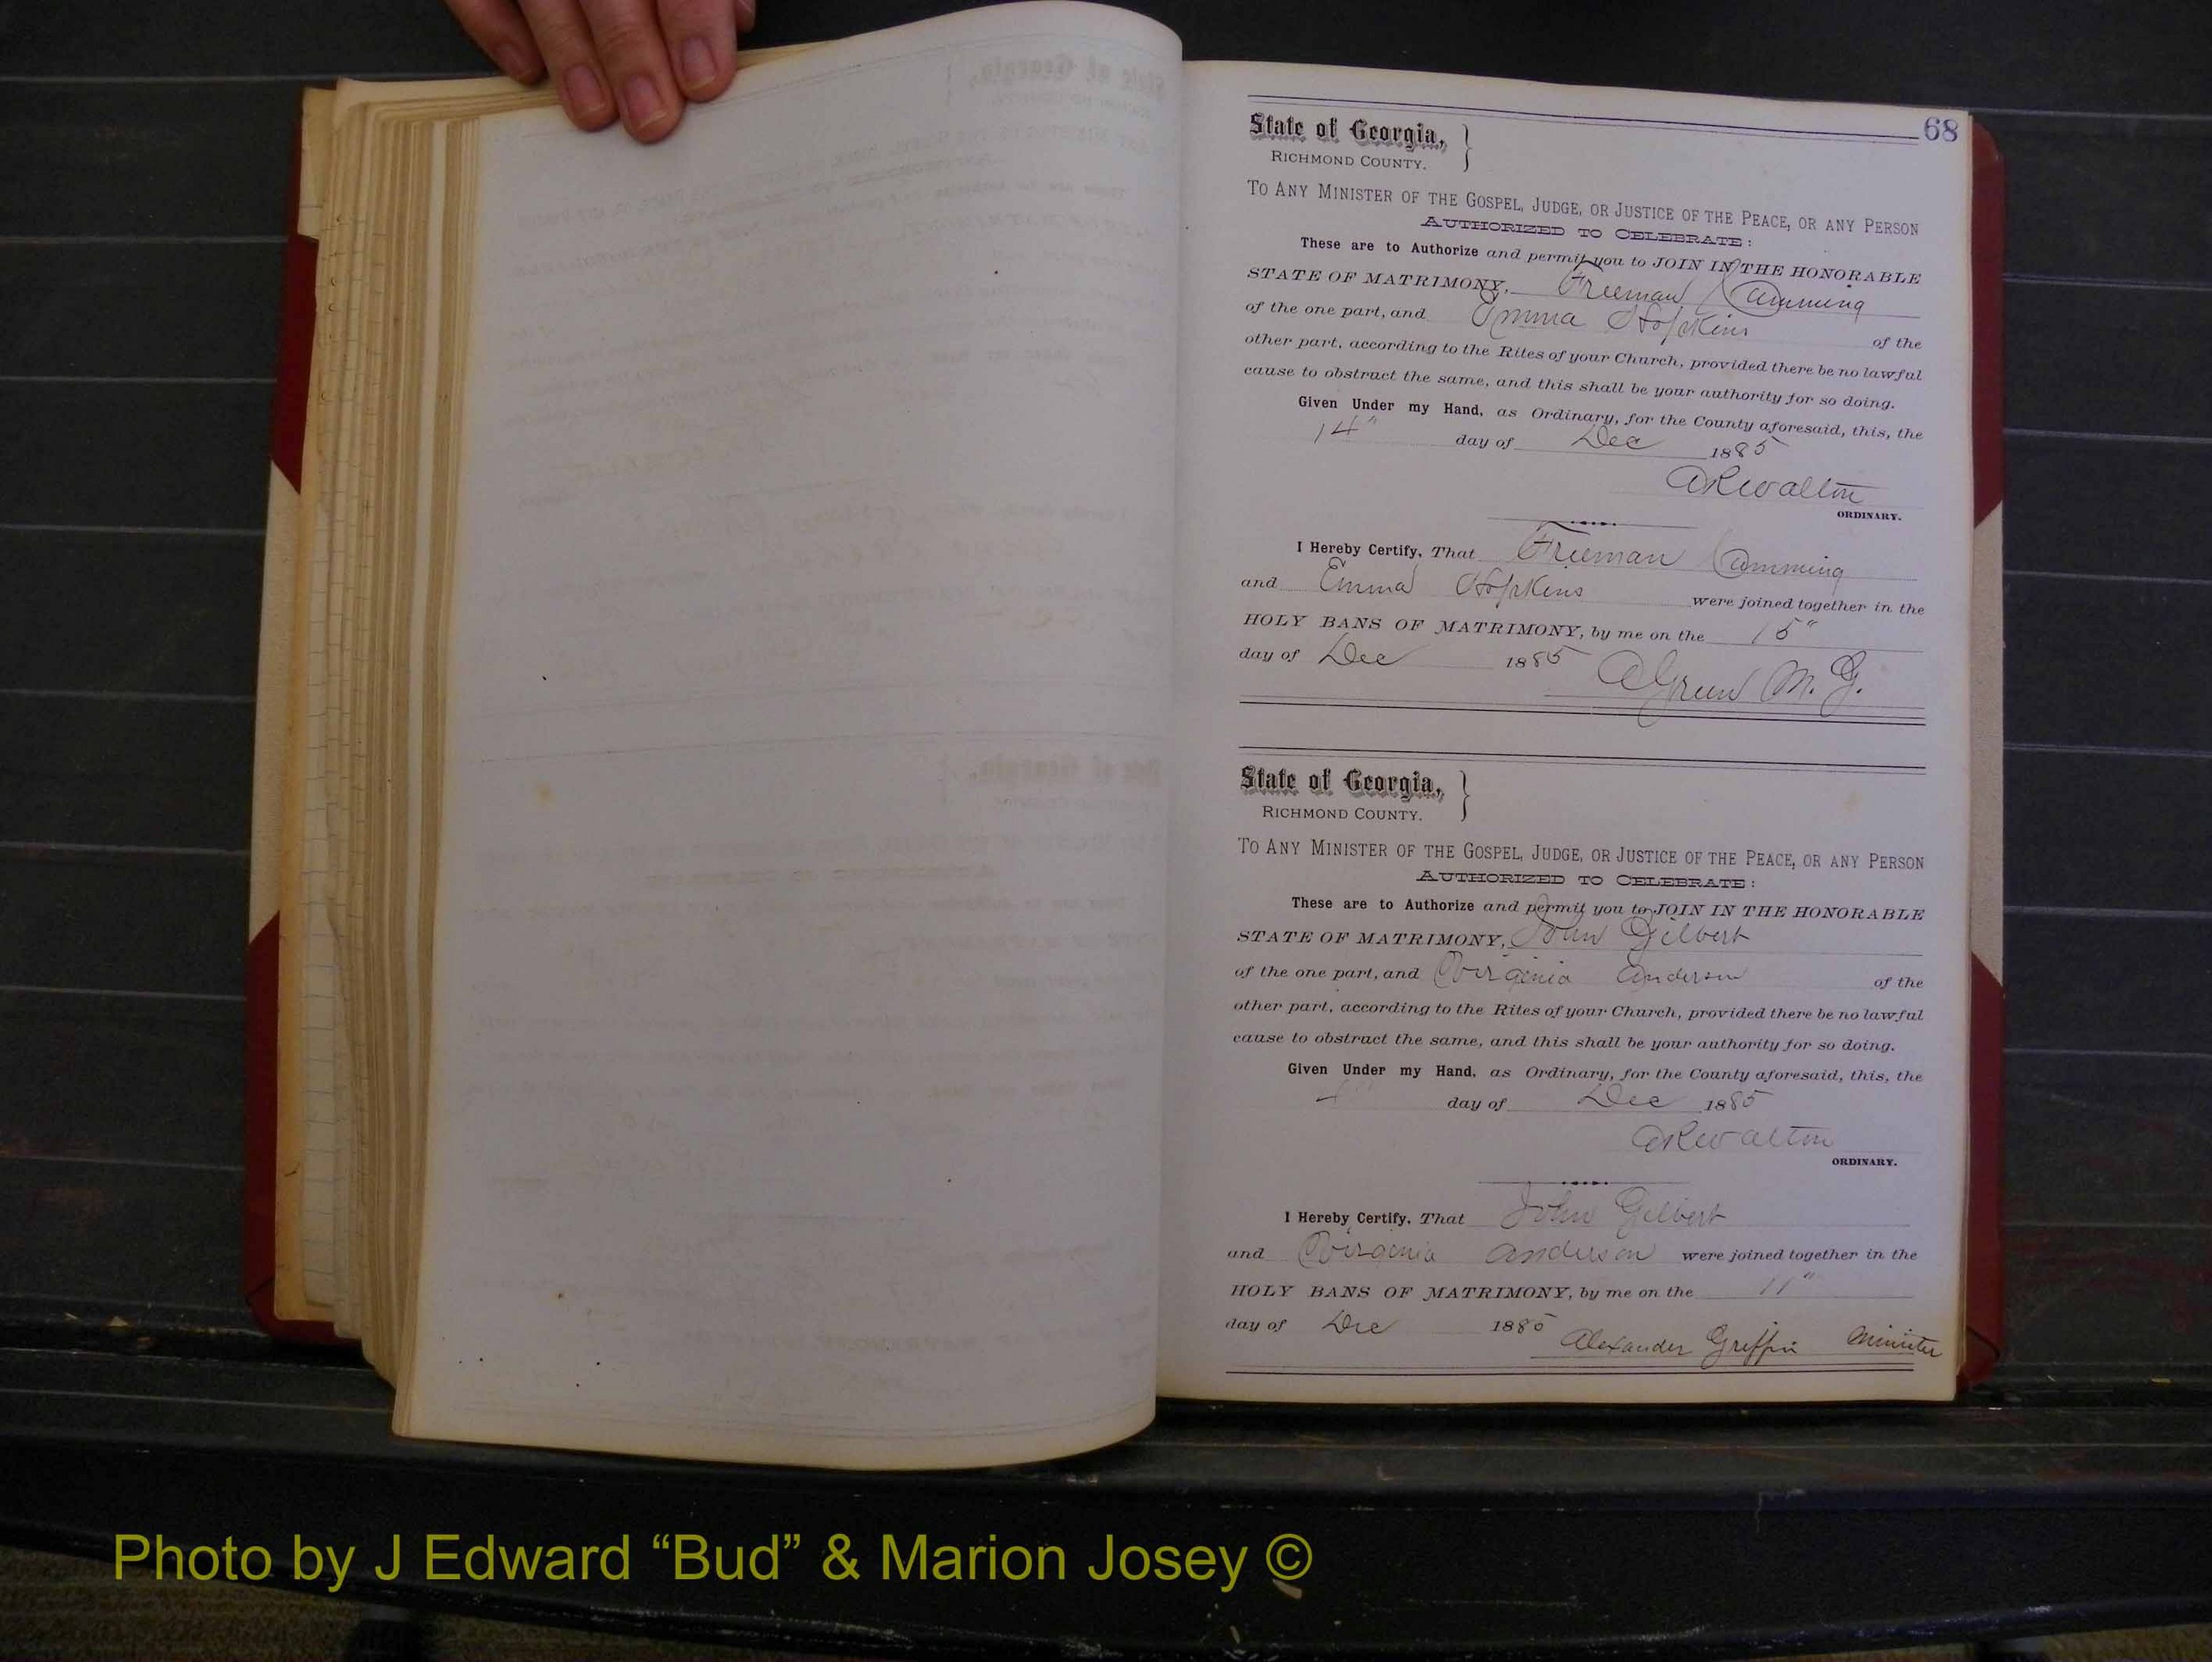 68
State of Georgia, }
RICHMOND COUNTY.
TO ANY MINISTER OF THE GOSPEL, JUDGE, OR JUSTICE OF THE PEACE, OR ANY PERSON
AUTHORIZED TO CELEBRATE:
These are to Authorize and permit you to JOIN IN THE HONORABLE
STATE OF MATRIMONY, Freeman Cumming
of the one part, and Emma Hopkins of the
other part, according to the Rites of your Church, provided there be no lawful
cause to obstruct the same, and this shall be your authority for so doing.
Given Under my Hand, as Ordinary, for the County aforesaid, this, the
14" day of Dec 1885
ARWalton
ORDINARY.
I Hereby Certify, That Freeman Cumming
and Emma Hopkins were joined together in the
HOLY BANS OF MATRIMONY, by me on the 15"
day of Dec 1885 A Green M. G.
State of Georgia, }
RICHMOND COUNTY.
TO ANY MINISTER OF THE GOSPEL, JUDGE, OR JUSTICE OF THE PEACE, OR ANY PERSON
AUTHORIZED TO CELEBRATE:
These are to Authorize and permit you to JOIN IN THE HONORABLE
STATE OF MATRIMONY, John Gilbert
of the one part, and Virginia Anderson of the
other part, according to the Rites of your Church, provided there be no lawful
cause to obstruct the same, and this shall be your authority for so doing.
Given Under my Hand, as Ordinary, for the County aforesaid, this, the
day of Dec 1885
ARWalton
ORDINARY.
I Hereby Certify, That John Gilbert
and Virginia Anderson were joined together in the
HOLY BANS OF MATRIMONY, by me on the 11"
day of Dec 1885 Alexander Griffin Minister
Photo by J Edward “Bud” & Marion Josey ©